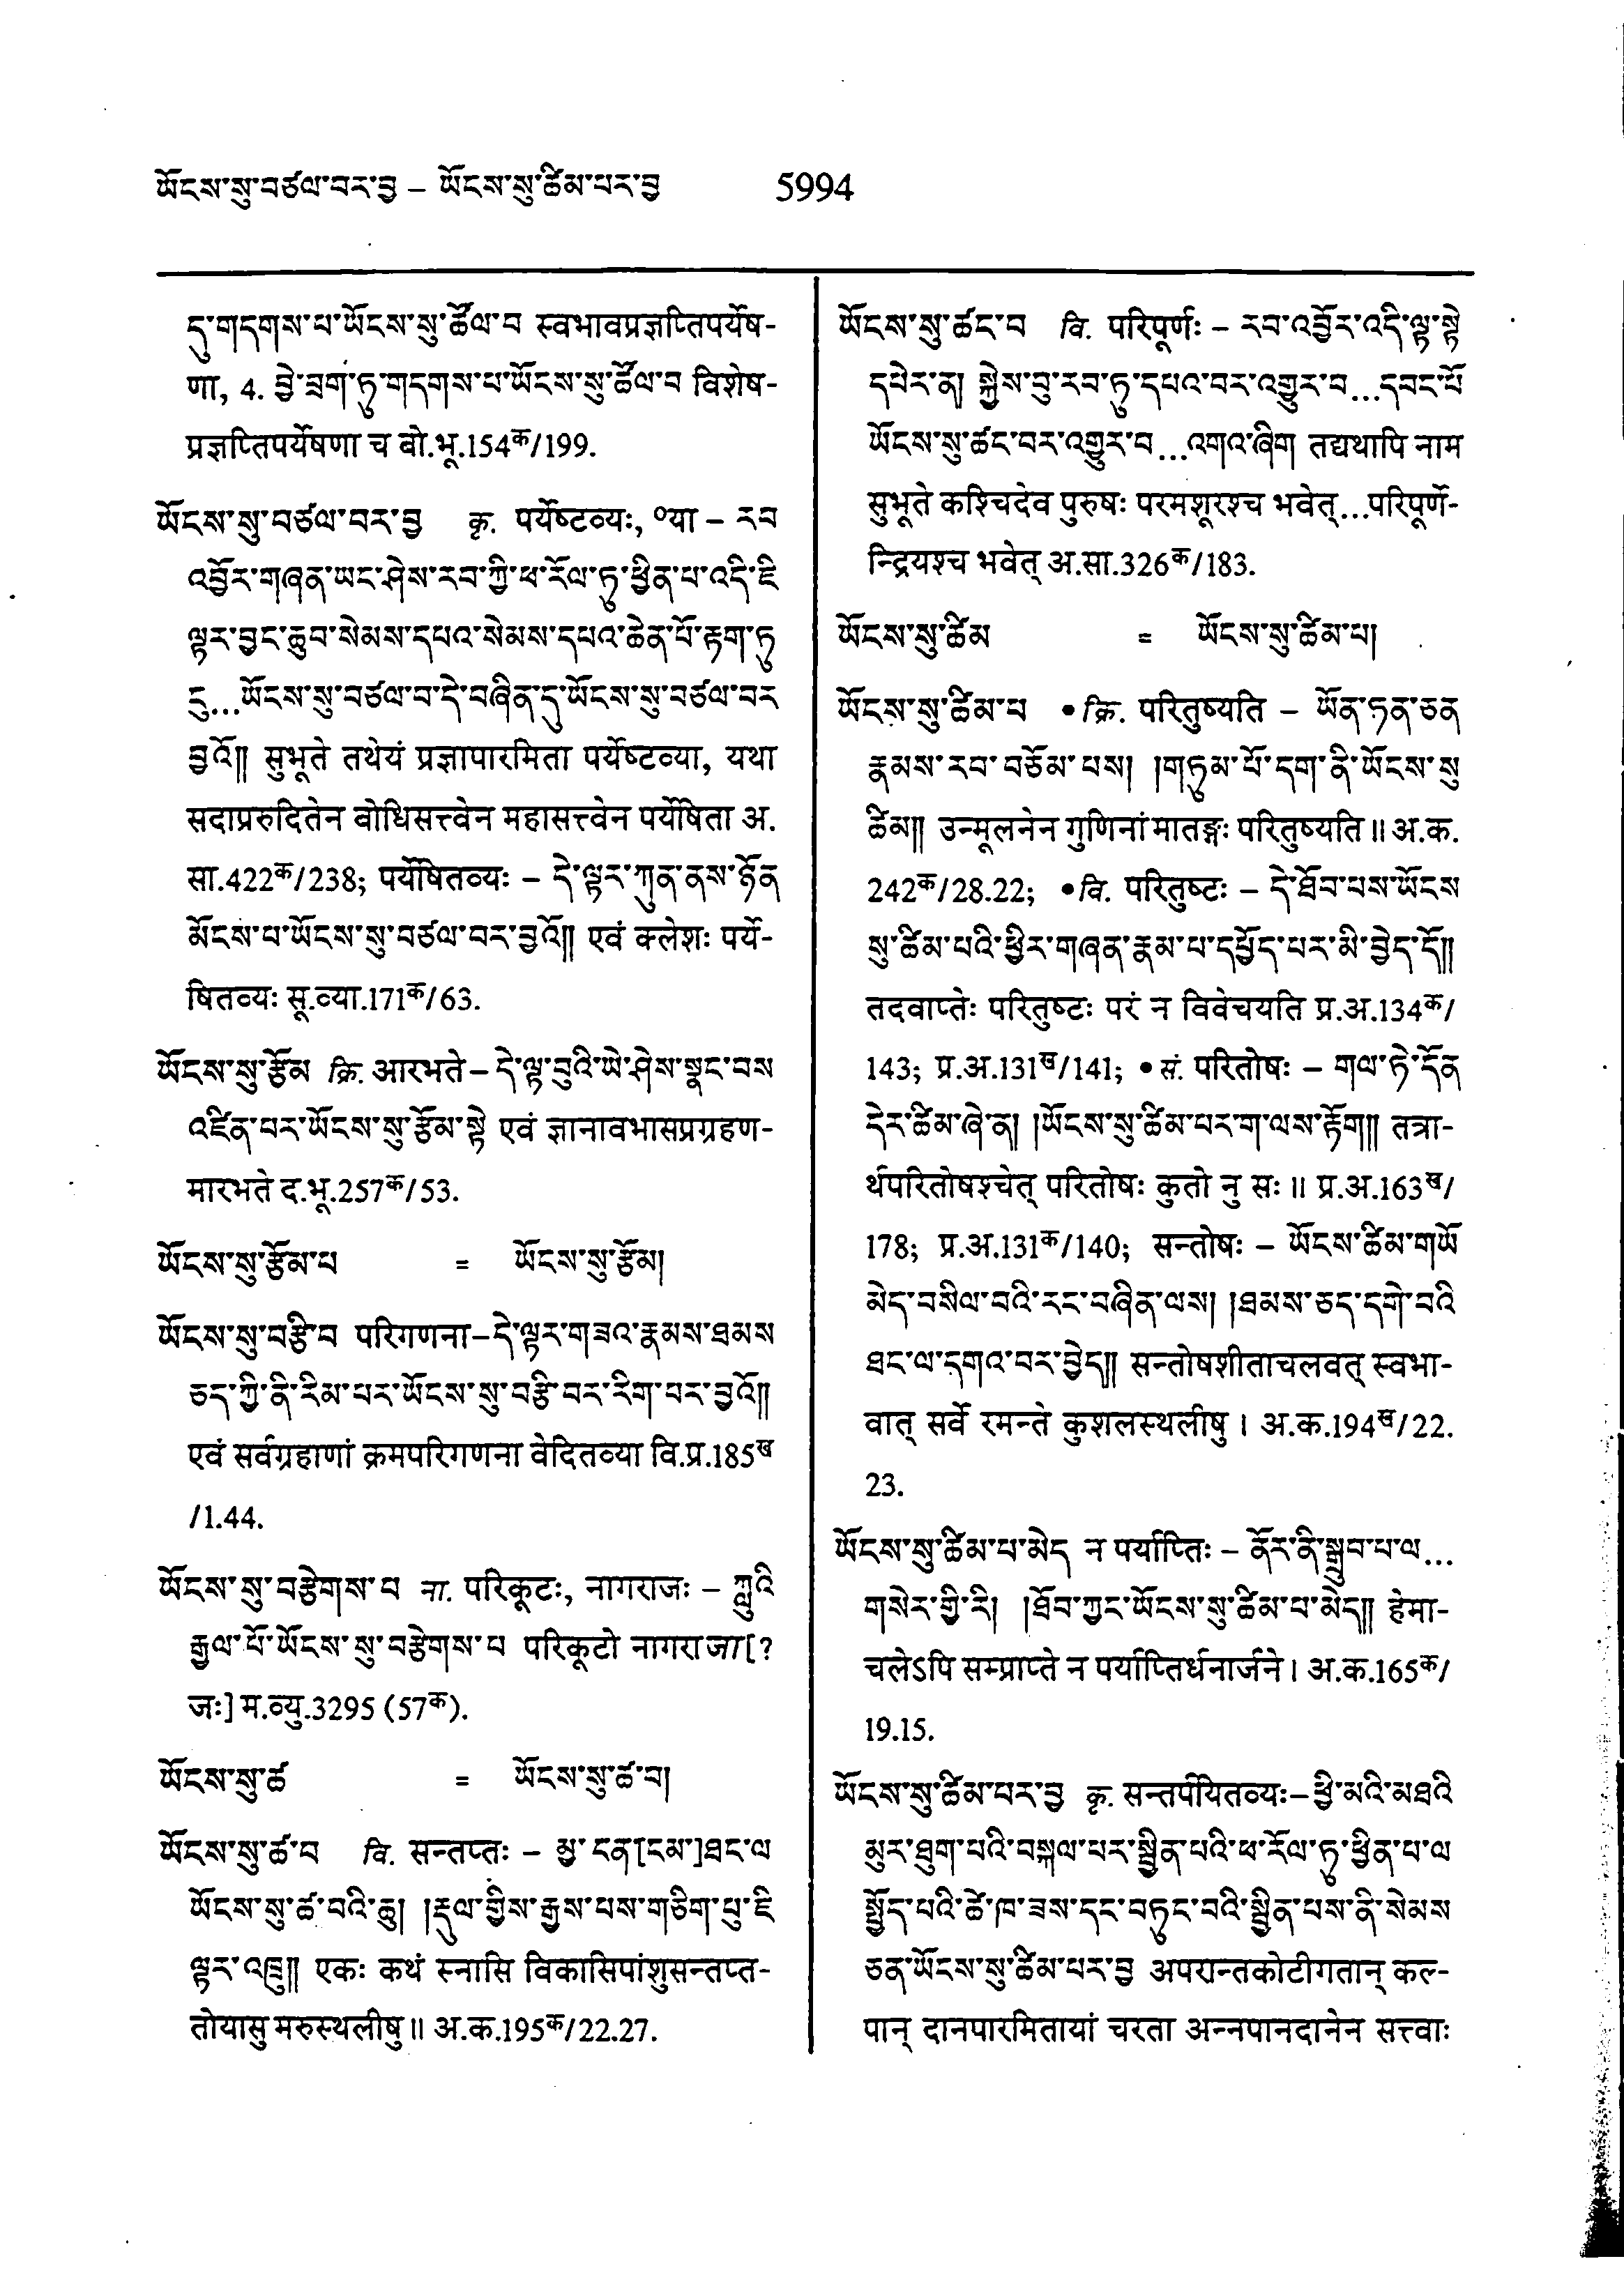 ཡོངས་སུ་བཙལ་བར་བྱ – ཡོངས་སུ་ཚིམ་པར་བྱ 5994
དུ་གདགས་པ་ཡོངས་སུ་ཚོལ་བ स्वभावप्रज्ञप्तिपर्येष-
णा, 4. བྱེ་བྲག་ཏུ་གདགས་པ་ཡོངས་སུ་ཚོལ་བ विशेष-
प्रज्ञप्तिपर्येषणा च बो.भू.154क/199.
ཡོངས་སུ་བཙལ་བར་བྱ कृ. पर्येष्टव्यः, ०या – རབ
འབྱོར་གཞན་ཡང་ཤེས་རབ་ཀྱི་ཕ་རོལ་ཏུ་ཕྱིན་པ་འདི་ཇི
ལྟར་བྱང་ཆུབ་སེམས་དཔའ་སེམས་དཔའ་ཆེན་པོ་རྟག་ཏུ
ངུ...ཡོངས་སུ་བཙལ་བ་དེ་བཞིན་དུ་ཡོངས་སུ་བཙལ་བར
བྱའོ།། सुभूते तथेयं प्रज्ञापारमिता पर्येष्टव्या, यथा
सदाप्ररुदितेन बोधिसत्त्वेन महासत्त्वेन पर्येषिता अ.
सा.422क/238; पर्येषितव्यः – དེ་ལྟར་ཀུན་ནས་ཉོན
མོངས་པ་ཡོངས་སུ་བཙལ་བར་བྱའོ།། एवं क्लेशः पर्ये-
षितव्यः सू.व्या.171क/63.
ཡོངས་སུ་རྩོམ क्रि. आरभते – དེ་ལྟ་བུའི་ཡེ་ཤེས་སྣང་བས
འཛིན་པར་ཡོངས་སུ་རྩོམ་སྟེ एवं ज्ञानावभासप्रग्रहण-
मारभते द.भू.257क/53.
ཡོངས་སུ་རྩོམ་པ = ཡོངས་སུ་རྩོམ།
ཡོངས་སུ་བརྩི་བ परिगणना – དེ་ལྟར་གཟའ་རྣམས་ཐམས
ཅད་ཀྱི་ནི་རིམ་པར་ཡོངས་སུ་བརྩི་བར་རིག་པར་བྱའོ།།
एवं सर्वग्रहाणां क्रमपरिगणना वेदितव्या वि.प्र.185ख
/1.44.
ཡོངས་སུ་བརྩེགས་པ ना. परिकूटः, नागराजः – ཀླུའི
རྒྱལ་པོ་ཡོངས་སུ་བརྩེགས་པ परिकूटो नागराजा[?
जः] म.व्यु.3295 (57क).
ཡོངས་སུ་ཚ = ཡོངས་སུ་ཚ་བ།
ཡོངས་སུ་ཚ་བ वि. सन्तप्तः – མྱ་ངན[ངམ་]ཐང་ལ
ཡོངས་སུ་ཚ་བའི་ཆུ། །རྡུལ་གྱིས་རྒྱས་པས་གཅིག་པུ་ཇི
ལྟར་འཁྲུ།། एकः कथं स्नासि विकासिपांशुसन्तप्त-
तोयासु मरुस्थलीषु ॥ अ.क.195क/22.27.
ཡོངས་སུ་ཚང་བ वि. परिपूर्णः – རབ་འབྱོར་འདི་ལྟ་སྟེ
དཔེར་ན། སྐྱེས་བུ་རབ་ཏུ་དཔའ་བར་འགྱུར་བ...དབང་པོ
ཡོངས་སུ་ཚང་བར་འགྱུར་བ...འགའ་ཞིག तद्यथापि नाम
सुभूते कश्चिदेव पुरुषः परमशूरश्च भवेत्...परिपूर्णे-
न्द्रियश्च भवेत् अ.सा.326क/183.
ཡོངས་སུ་ཚིམ = ཡོངས་སུ་ཚིམ་པ།
ཡོངས་སུ་ཚིམ་པ • क्रि. परितुष्यति – ཡོན་ཏན་ཅན
རྣམས་རབ་བཅོམ་པས། །གཏུམ་པོ་དག་ནི་ཡོངས་སུ
ཚིམ།། उन्मूलनेन गुणिनां मातङ्गः परितुष्यति ॥ अ.क.
242क/28.22; • वि. परितुष्टः – དེ་ཐོབ་པས་ཡོངས
སུ་ཚིམ་པའི་ཕྱིར་གཞན་རྣམ་པ་དཔྱོད་པར་མི་བྱེད་དོ།།
तदवाप्तेः परितुष्टः परं न विवेचयति प्र.अ.134क/
143; प्र.अ.131ख/141; • सं. परितोषः – གལ་ཏེ་དོན
དེར་ཚིམ་ཞེ་ན། །ཡོངས་སུ་ཚིམ་པར་ག་ལས་རྟོག།། तत्रा-
र्थपरितोषश्चेत् परितोषः कुतो नु सः ॥ प्र.अ.163ख/
178; प्र.अ.131क/140; सन्तोषः – ཡོངས་ཚིམ་གཡོ
མེད་བསིལ་བའི་རང་བཞིན་ལས། །ཐམས་ཅད་དགེ་བའི
ཐང་ལ་དགའ་བར་བྱེད།། सन्तोषशीताचलवत् स्वभा-
वात् सर्वे रमन्ते कुशलस्थलीषु । अ.क.194ख/22.
23.
ཡོངས་སུ་ཚིམ་པ་མེད न पर्याप्तिः – ནོར་ནི་སྒྲུབ་པ་ལ...
གསེར་གྱི་རི། །ཐོབ་ཀྱང་ཡོངས་སུ་ཚིམ་པ་མེད།། हेमा-
चलेऽपि सम्प्राप्ते न पर्याप्तिर्धनार्जने । अ.क.165क/
19.15.
ཡོངས་སུ་ཚིམ་པར་བྱ कृ. सन्तर्पयितव्यः – ཕྱི་མའི་མཐའི
མུར་ཐུག་པའི་བསྐལ་པར་སྦྱིན་པའི་ཕ་རོལ་ཏུ་ཕྱིན་པ་ལ
སྤྱོད་པའི་ཚེ་ཁ་ཟས་དང་བཏུང་བའི་སྦྱིན་པས་ནི་སེམས
ཅན་ཡོངས་སུ་ཚིམ་པར་བྱ अपरान्तकोटीगतान् कल्-
पान् दानपारमितायां चरता अन्नपानदानेन सत्त्वाः